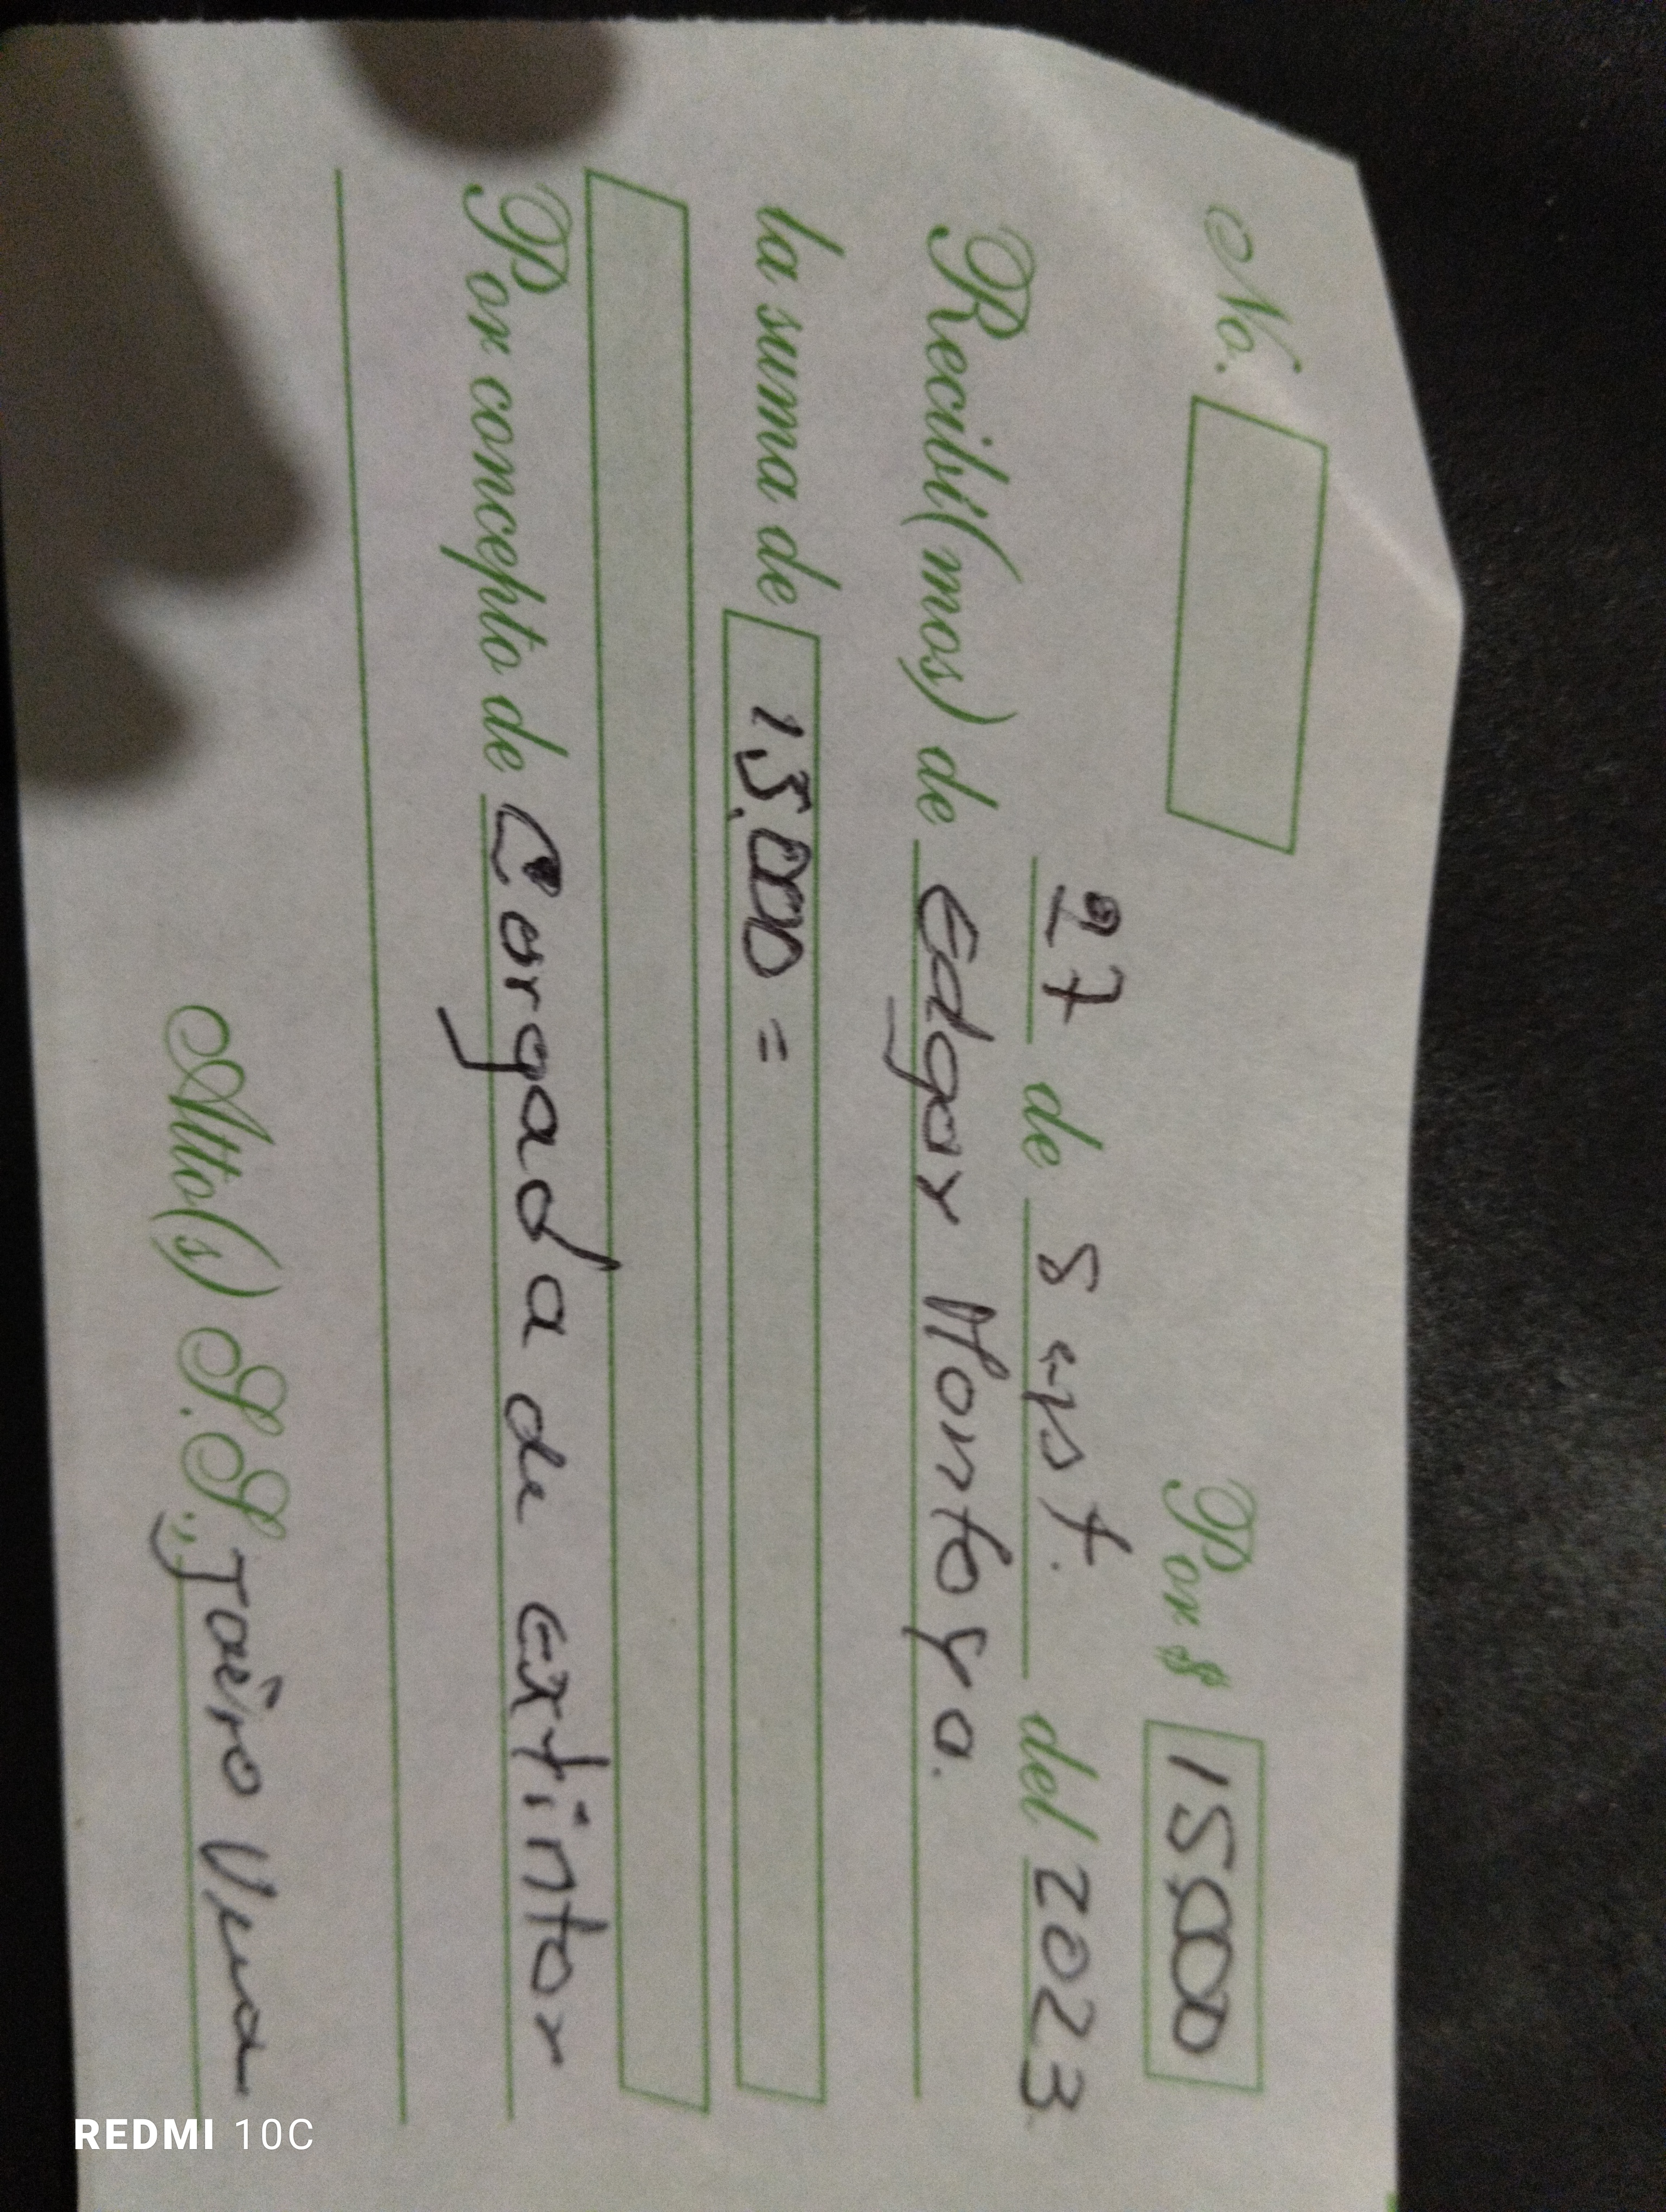 No.
Por $ 15.000
27 de Sept. del 2023
Recibí(mos) de Edgar Montoya.
la suma de 15.000 =
Por concepto de Cargada de extintor
Atto(s) S.S., Jairo
REDMI 10C